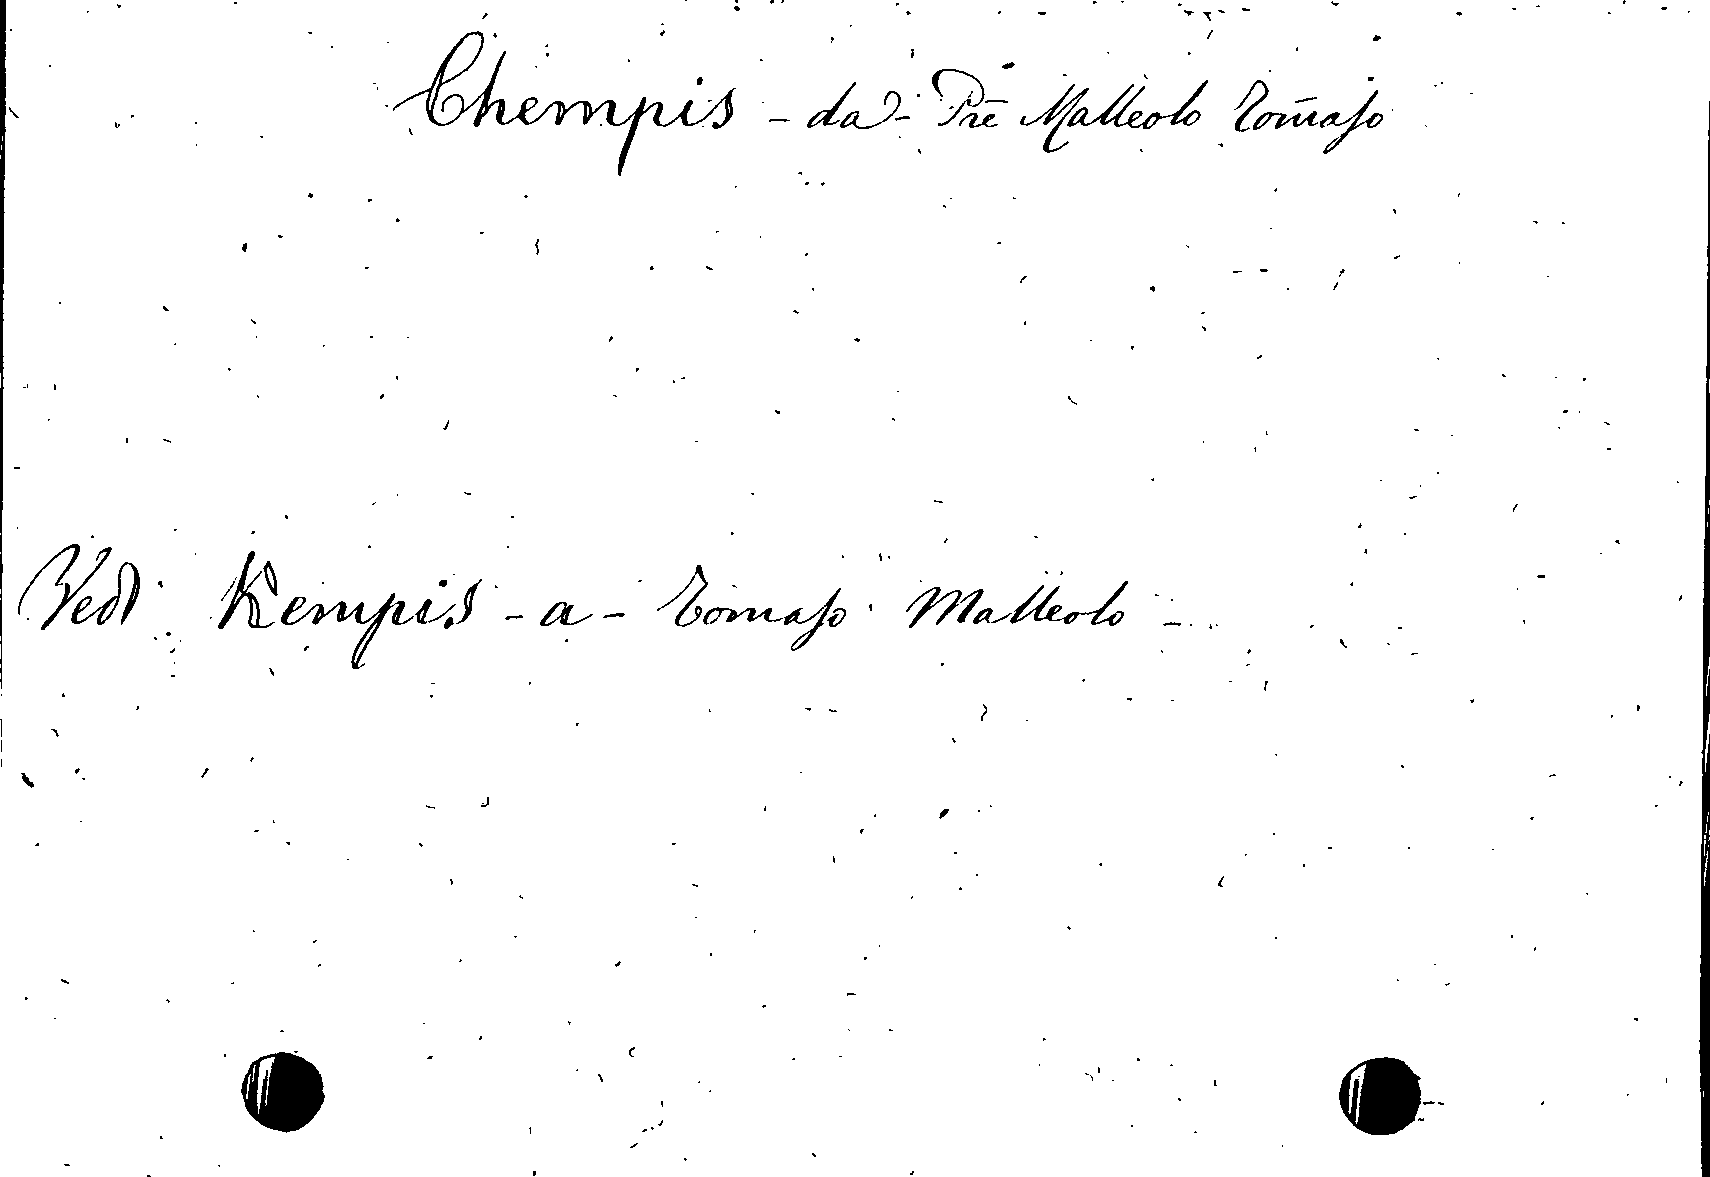 Chempis - da - Prē Malleolo Tomaſo
Vedi Kempis - a - Tomaſo Malleolo -